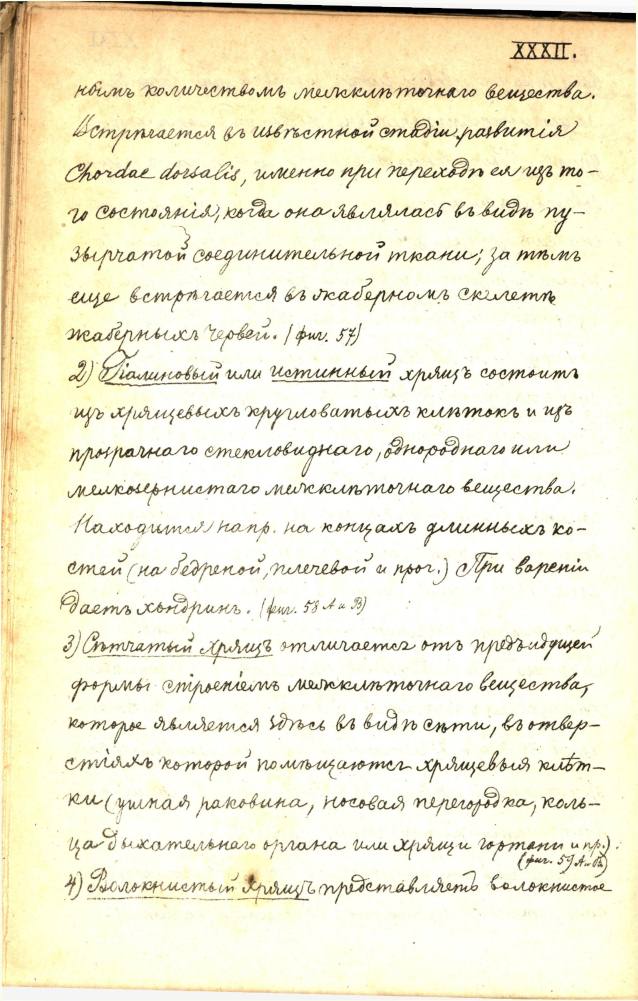 XXXII.
нымъ количествомъ межклѣточнаго вещества.
Встрѣчается въ извѣстной стадіи развитія
Chordae dorsalis, именно при переходѣ ея изъ то-
го состоянія, когда она являлась въ видѣ пу-
зырчатой соединительной ткани; за тѣмъ
еще встрѣчается въ жаберномъ скелетѣ
жаберныхъ червей. (фиг. 57)
2) Гіалиновый или истинный хрящъ состоитъ
изъ хрящевыхъ кругловатыхъ клѣтокъ и изъ
прозрачнаго стекловиднаго, однороднаго или
мелкозернистаго межклѣточнаго вещества.
Находится напр. на концахъ длинныхъ ко-
стей (на бедреной, плечевой и проч.) При вареніи
даетъ хондринъ. (фиг. 58 А и В)
3) Сѣтчатый хрящъ отличается отъ предъидущей
формы строеніемъ межклѣточнаго вещества,
которое является здѣсь въ видѣ сѣти, въ отвер-
стіяхъ которой помѣщаются хрящевыя клѣт-
ки (ушная раковина, носовая перегородка, коль-
ца дыхательнаго органа или хрящи гортани и пр.)
(фиг. 59 А и В)
4) Волокнистый хрящъ представляетъ волокнистое